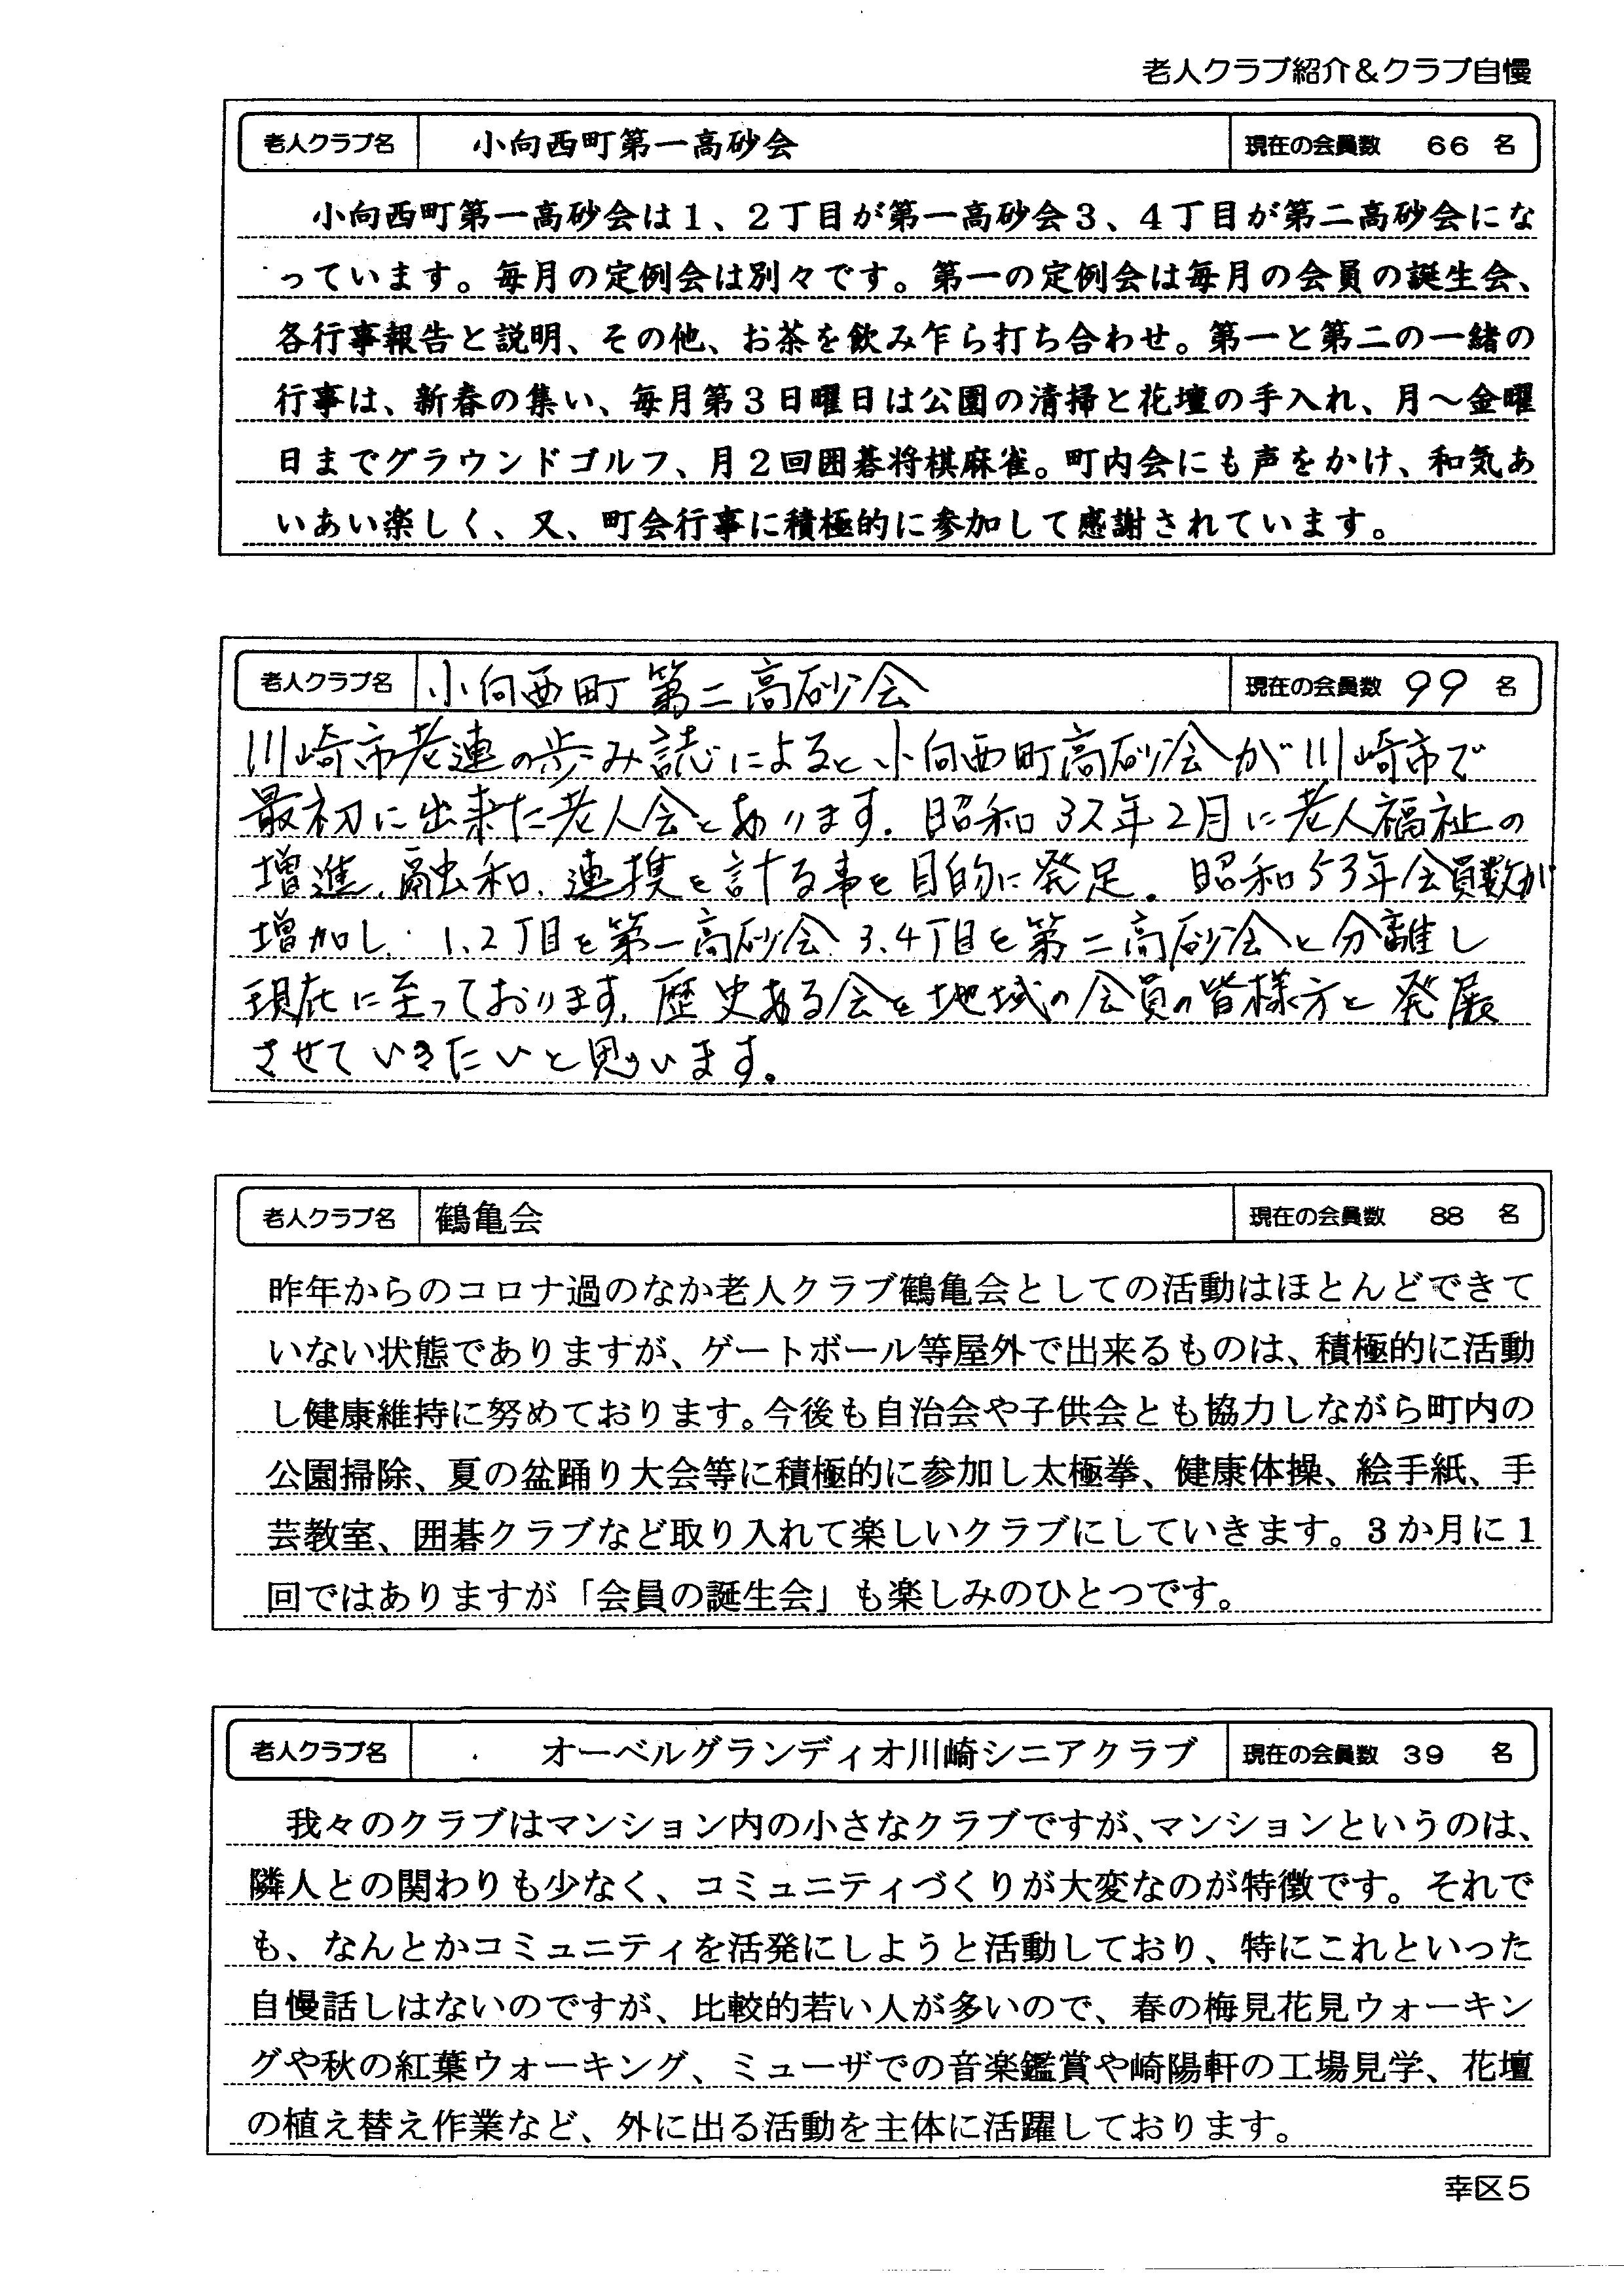 老人クラブ紹介＆クラブ自慢
老人クラブ名　小向西町第一高砂会　現在の会員数　66　名
小向西町第一高砂会は１、２丁目が第一高砂会３、４丁目が第二高砂会にな
っています。毎月の定例会は別々です。第一の定例会は毎月の会員の誕生会、
各行事報告と説明、その他、お茶を飲み乍ら打ち合わせ。第一と第二の一緒の
行事は、新春の集い、毎月第３日曜日は公園の清掃と花壇の手入れ、月～金曜
日までグラウンドゴルフ、月２回囲碁将棋麻雀。町内会にも声をかけ、和気あ
いあい楽しく、又、町会行事に積極的に参加して感謝されています。
老人クラブ名　小向西町第二高砂会　現在の会員数　99　名
川崎市老連の歩み誌によると、小向西町高砂会が川崎市で
最初に出来た老人会とあります。昭和37年2月に老人福祉の
増進、融和、連携を計る事を目的に発足。昭和53年会員数が
増加し、1、2丁目を第一高砂会、3、4丁目を第二高砂会と分離し
現在に至っております。歴史ある会を地域の会員の皆様方と発展
させていきたいと思います。
老人クラブ名　鶴亀会　現在の会員数　88　名
昨年からのコロナ過のなか老人クラブ鶴亀会としての活動はほとんどできて
いない状態でありますが、ゲートボール等屋外で出来るものは、積極的に活動
し健康維持に努めております。今後も自治会や子供会とも協力しながら町内の
公園掃除、夏の盆踊り大会等に積極的に参加し太極拳、健康体操、絵手紙、手
芸教室、囲碁クラブなど取り入れて楽しいクラブにしていきます。３か月に１
回ではありますが「会員の誕生会」も楽しみのひとつです。
老人クラブ名　オーベルグランディオ川崎シニアクラブ　現在の会員数　39　名
我々のクラブはマンション内の小さなクラブですが、マンションというのは、
隣人との関わりも少なく、コミュニティづくりが大変なのが特徴です。それで
も、なんとかコミュニティを活発にしようと活動しており、特にこれといった
自慢話しはないのですが、比較的若い人が多いので、春の梅見花見ウォーキン
グや秋の紅葉ウォーキング、ミューザでの音楽鑑賞や崎陽軒の工場見学、花壇
の植え替え作業など、外に出る活動を主体に活躍しております。
幸区５